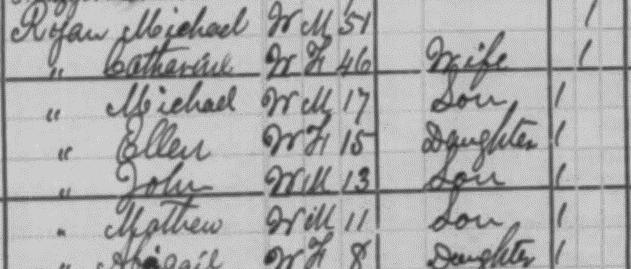 Ryan Michael W M 51 1
" Catherine W F 46 Wife 1
" Michael W M 17 Son 1
" Ellen W F 15 Daughter 1
" John W M 13 Son 1
" Mathew W M 11 Son 1
" Abigail W F 8 Daughter 1